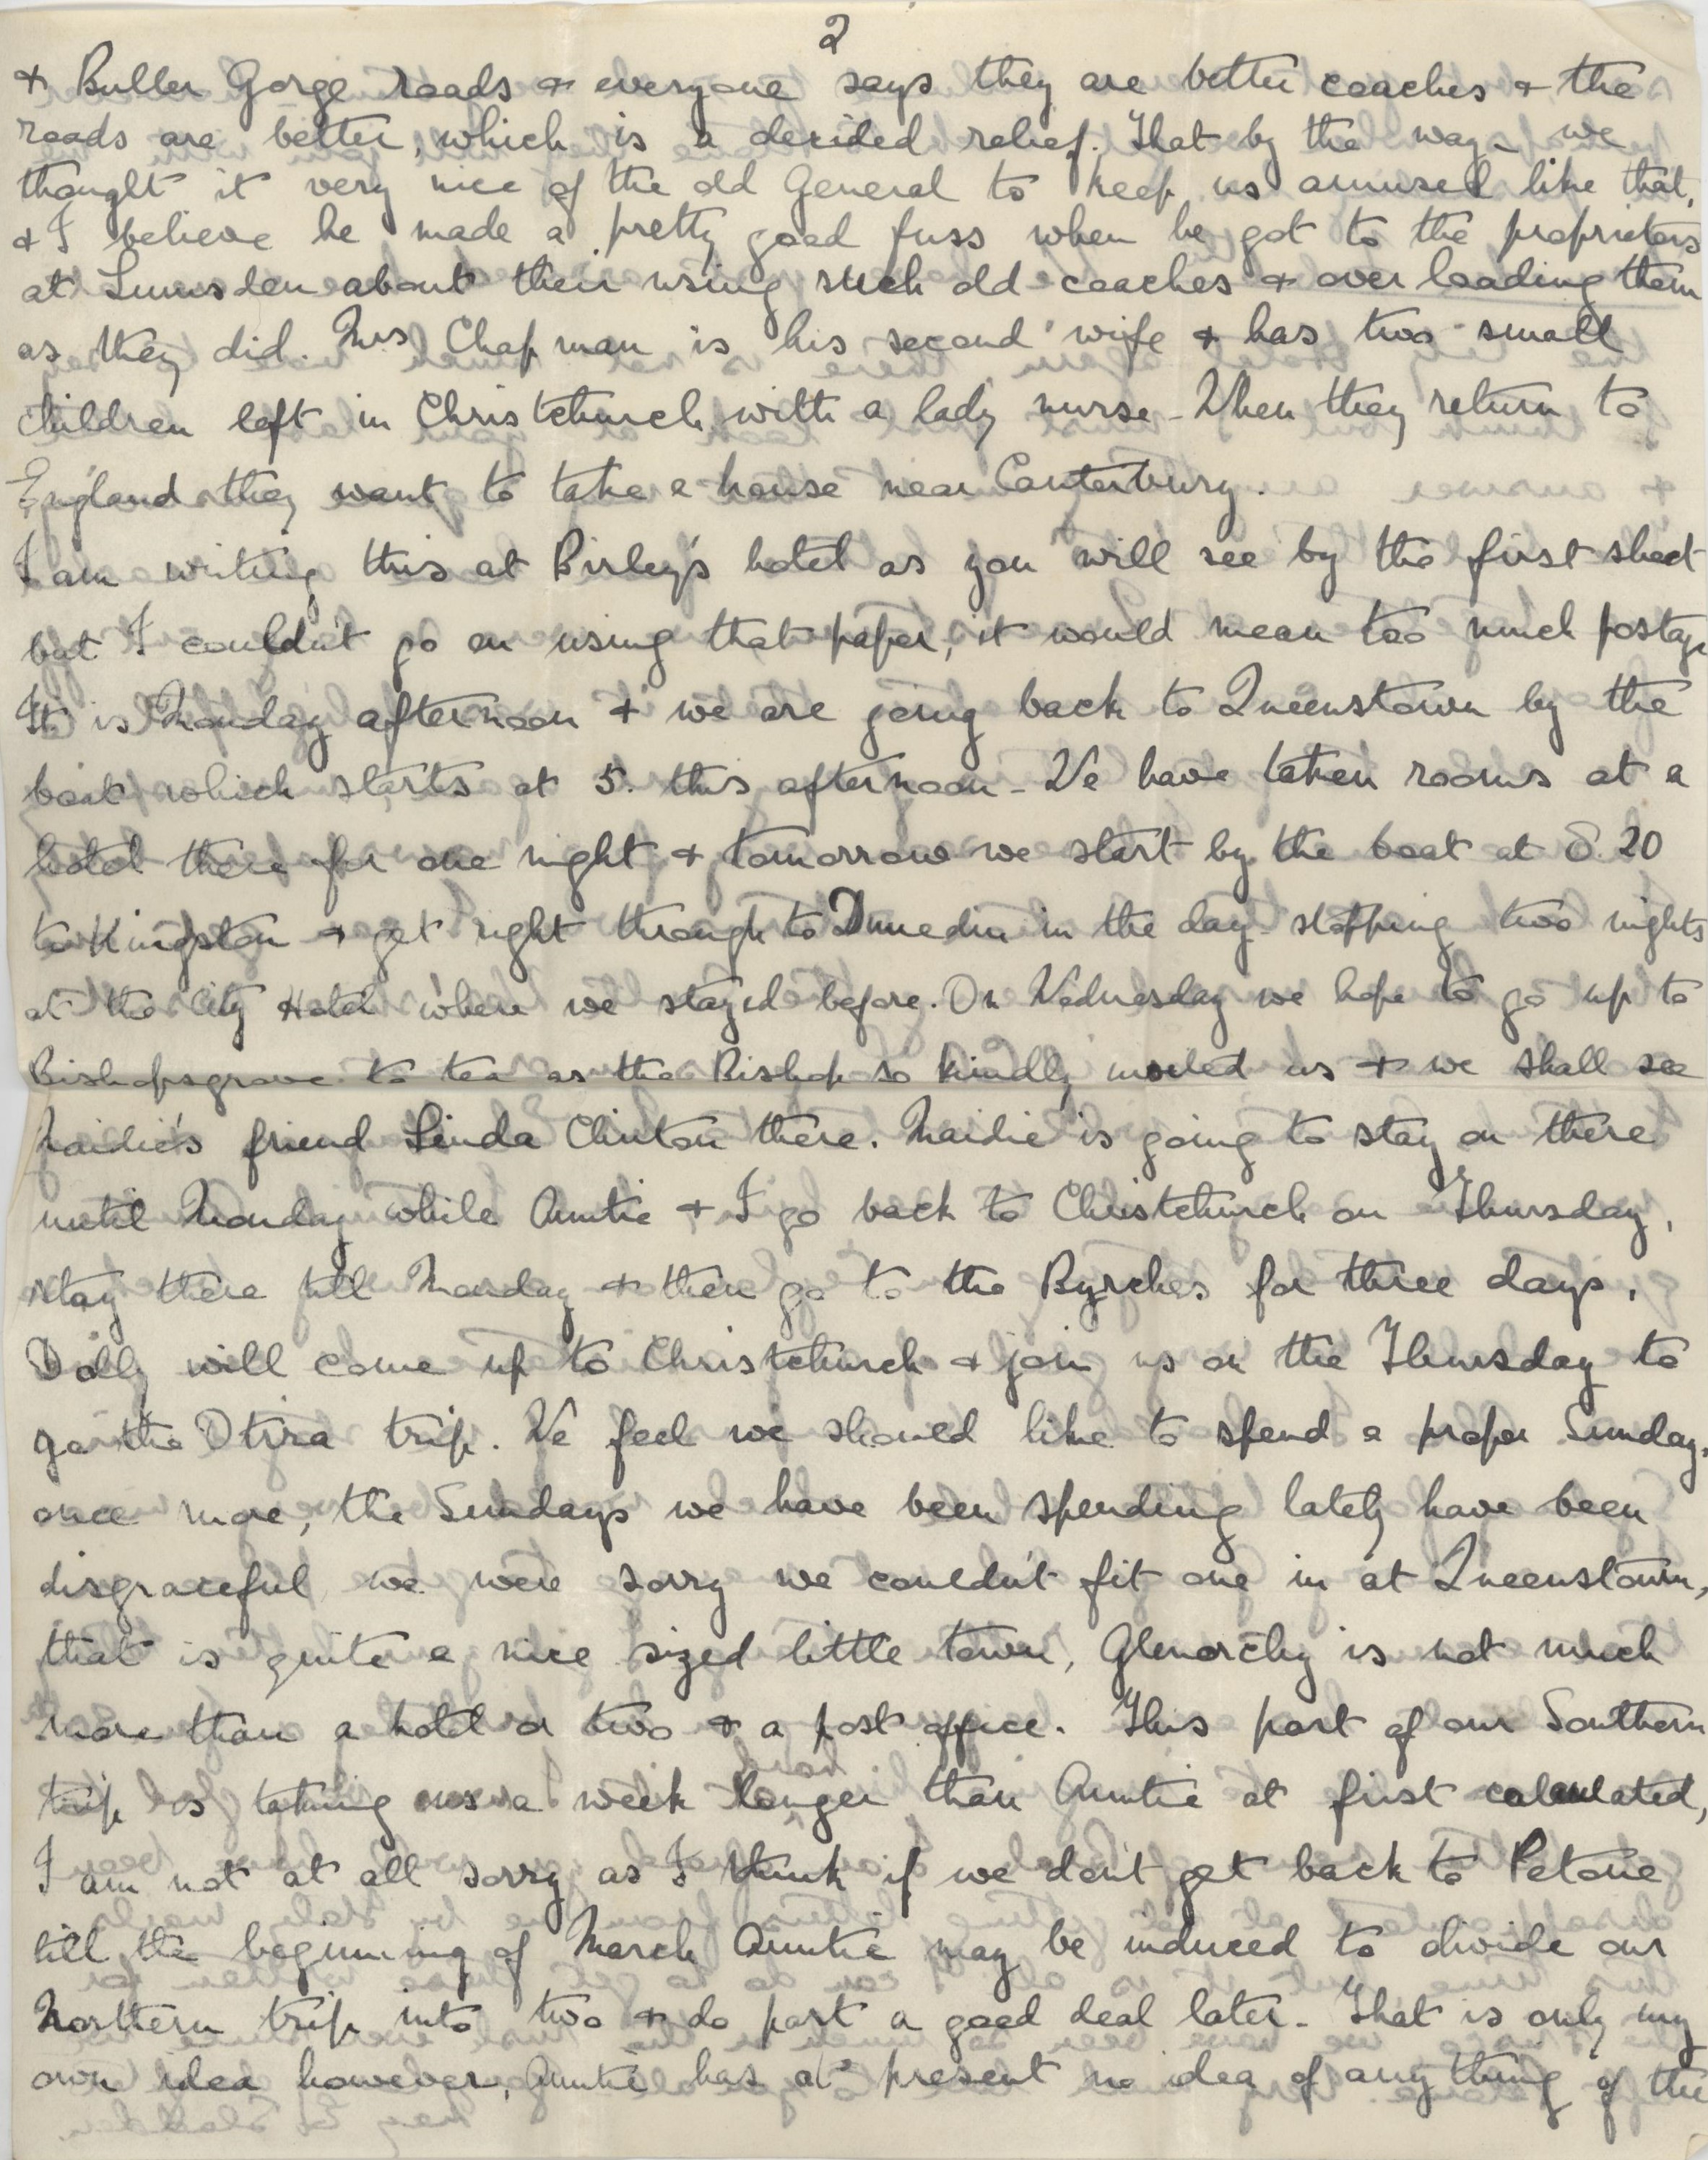 2
& Buller Gorge roads & everyone says they are better coaches & the
roads are better, which is a decided relief. That by the way - we
thought it very nice of the old General to keep us amused like that,
& I believe he made a pretty good fuss when he got to the proprietors
at Lumsden about their using such old coaches & over loading them
as they did. Mrs Chapman is his second wife & has two small
children left in Christchurch with a lady nurse - When they return to
England they want to take a house near Canterbury.
I am writing this at Birley's hotel as you will see by the first sheet
but I couldn't go on using that paper, it would mean too much postage
It is Monday afternoon & we are going back to Queenstown by the
boat which starts at 5. this afternoon - We have taken rooms at a
hotel there for one night & tomorrow we start by the boat at 8.20
to Kingston & get right through to Dunedin in the day - stopping two nights
at the City Hotel where we stayed before. On Wednesday we hope to go up to
Bishopsgrove to tea as the Bishop so kindly invited us & we shall see
Maidie's friend Linda Clinton there. Maidie is going to stay on there
until Monday while Auntie & I go back to Christchurch on Thursday,
stay there till Monday & then go to the Byrches for three days.
Dolly will come up to Christchurch & join us on the Thursday to
go the Otira trip. We feel we should like to spend a proper Sunday.
once more, the Sundays we have been spending lately have been
disgraceful we were sorry we couldn't fit one in at Queenstown,
that is quite a nice sized little town, Glenorchy is not much
more than a hotel or two & a post office. This part of our Southern
trip is taking us a week longer than Auntie at first calculated,
I am not at all sorry as I think if we don't get back to Petone
till the beginning of March Auntie may be induced to divide our
Northern trip into two & do part a good deal later - That is only my
own idea however, Auntie has at present no idea of any thing of the